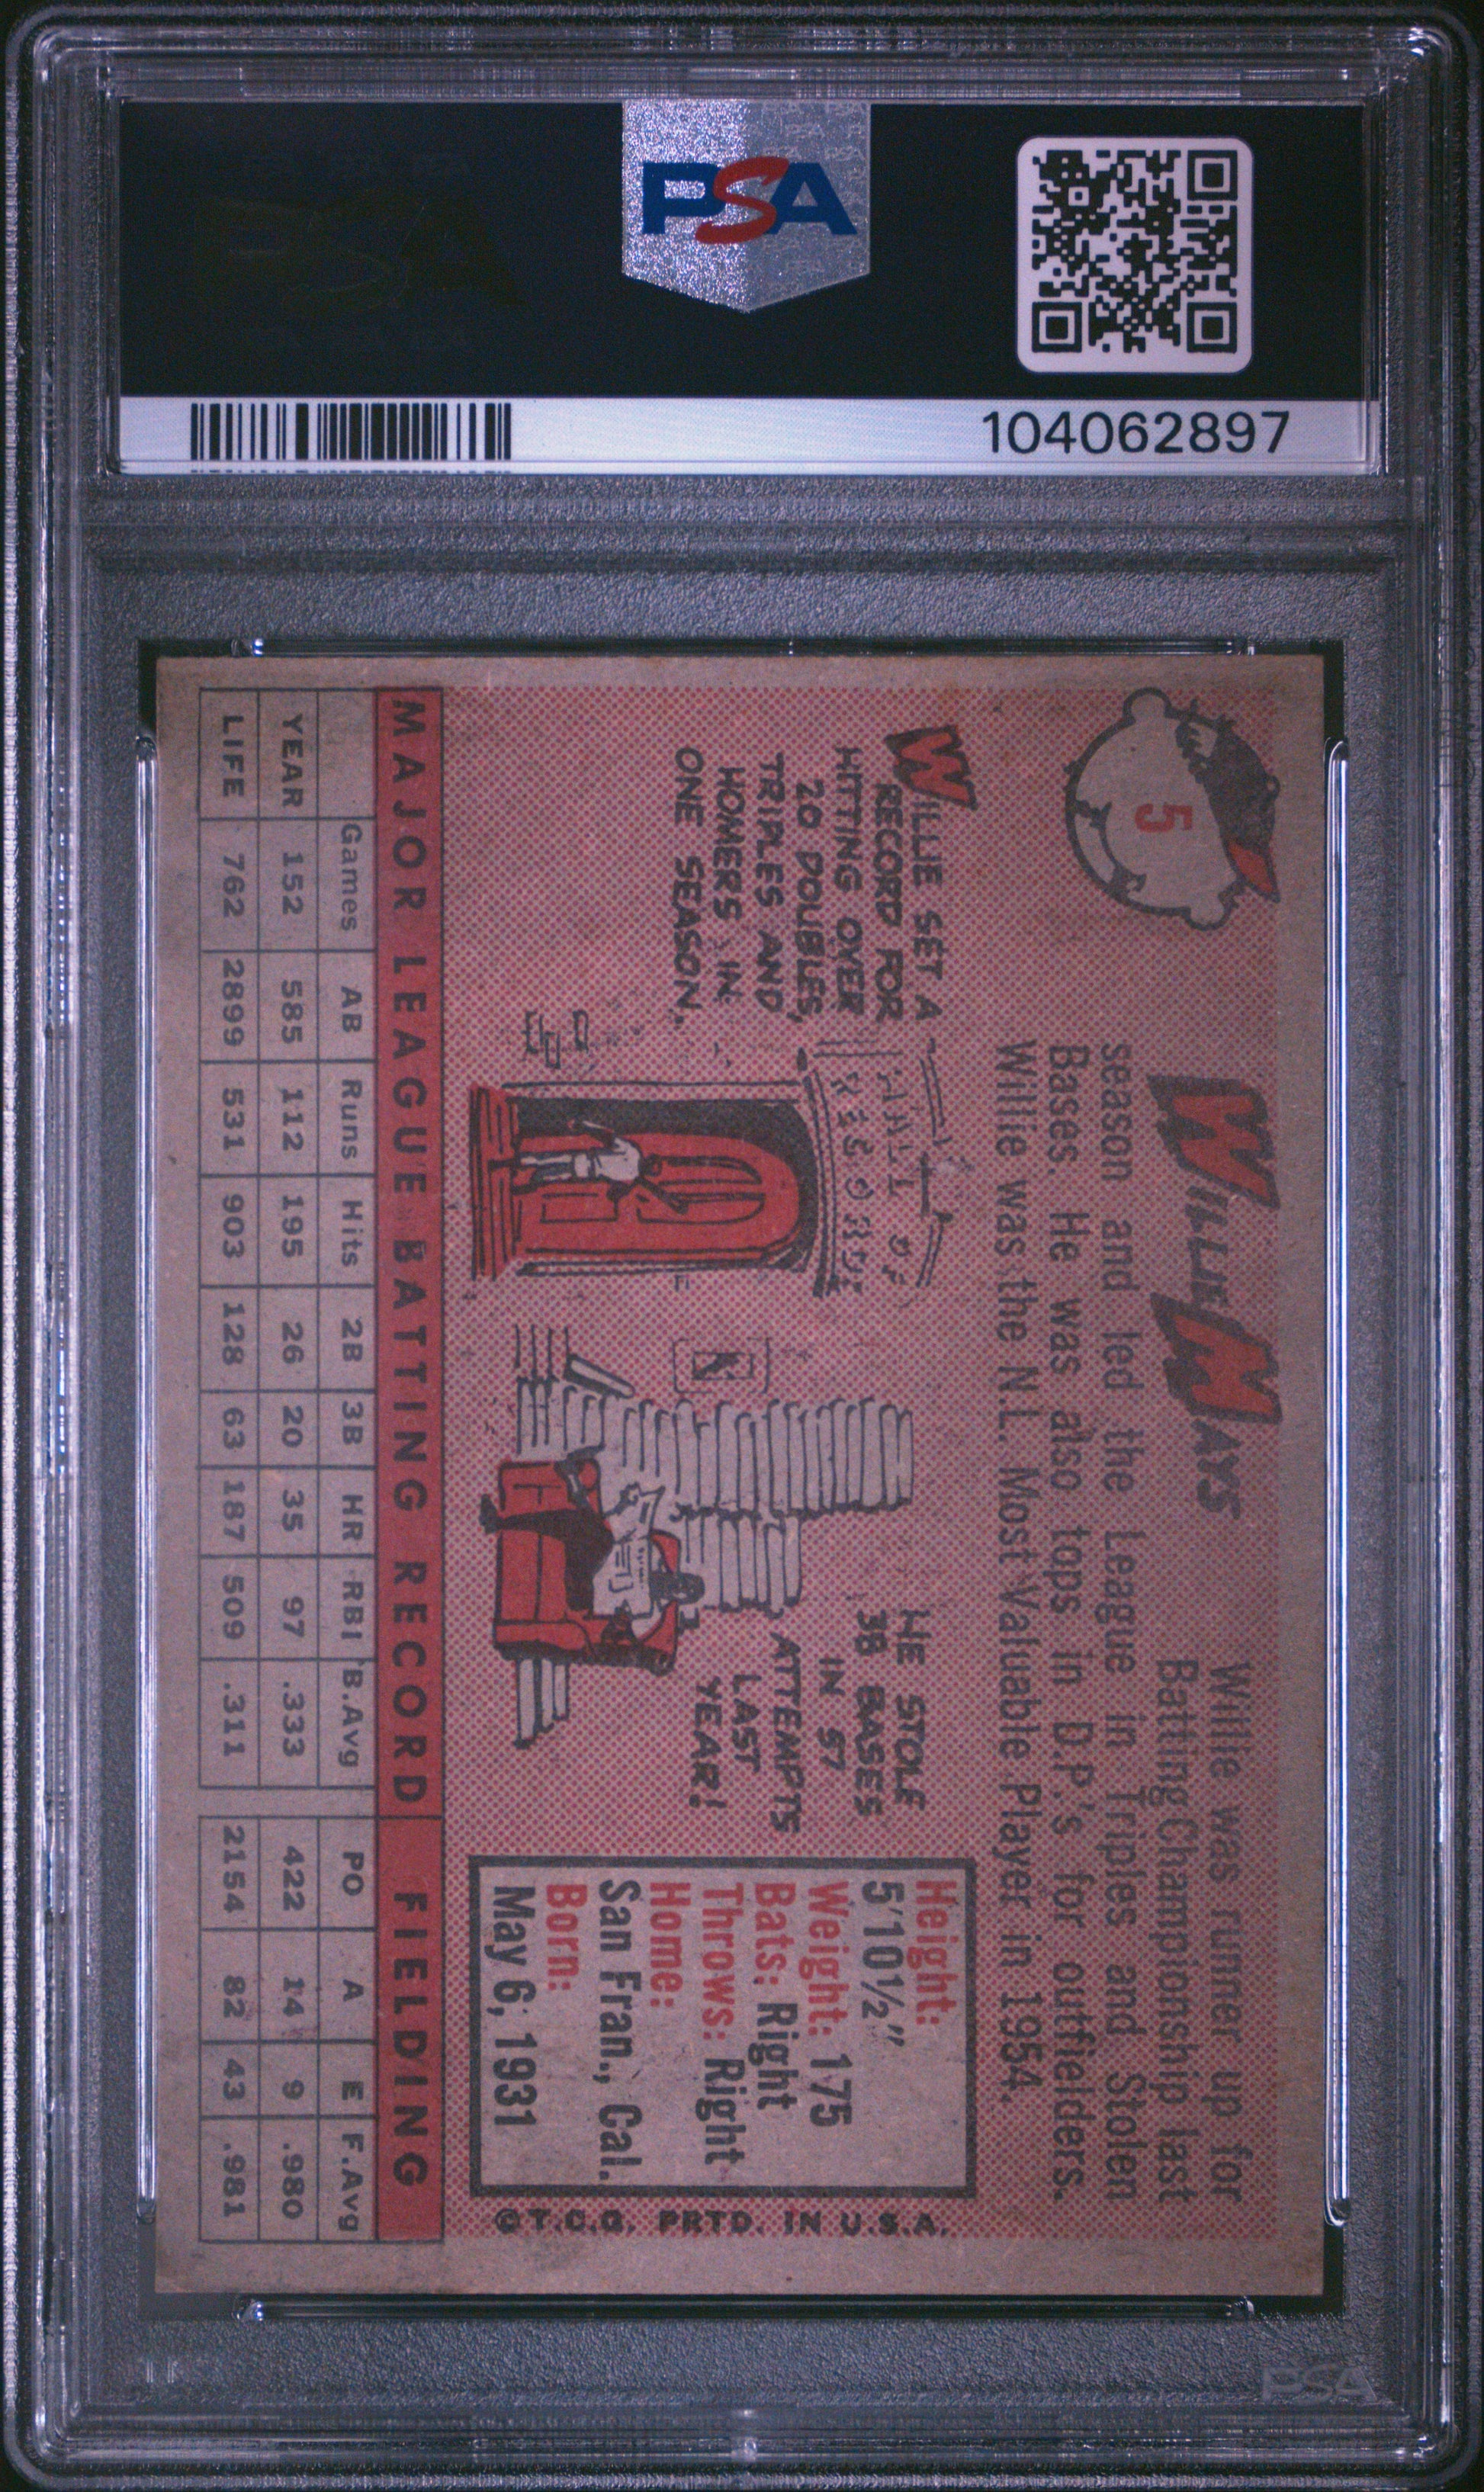 PSA
104062897
5
WILLIE MAYS
Willie was runner up for
Batting Championship last
season and led the League in Triples and Stolen
Bases. He was also tops in D.P.'s for outfielders.
Willie was the N.L. Most Valuable Player in 1954.
WILLIE SET A
RECORD FOR
HITTING OVER
20 DOUBLES,
TRIPLES AND
HOMERS IN
ONE SEASON.
HALL OF
RECORDS
HE STOLE
38 BASES
IN 57
ATTEMPTS
LAST
YEAR!
Height:
5'10½"
Weight: 175
Bats: Right
Throws: Right
Home:
San Fran., Cal.
Born:
May 6, 1931
© T.C.G. PRTD. IN U.S.A.
MAJOR LEAGUE BATTING RECORD FIELDING
Games AB Runs Hits 2B 3B HR RBI B.Avg PO A E F.Avg
YEAR 152 585 112 195 26 20 35 97 .333 422 14 9 .980
LIFE 762 2899 531 903 128 63 187 509 .311 2154 82 43 .981
PSA